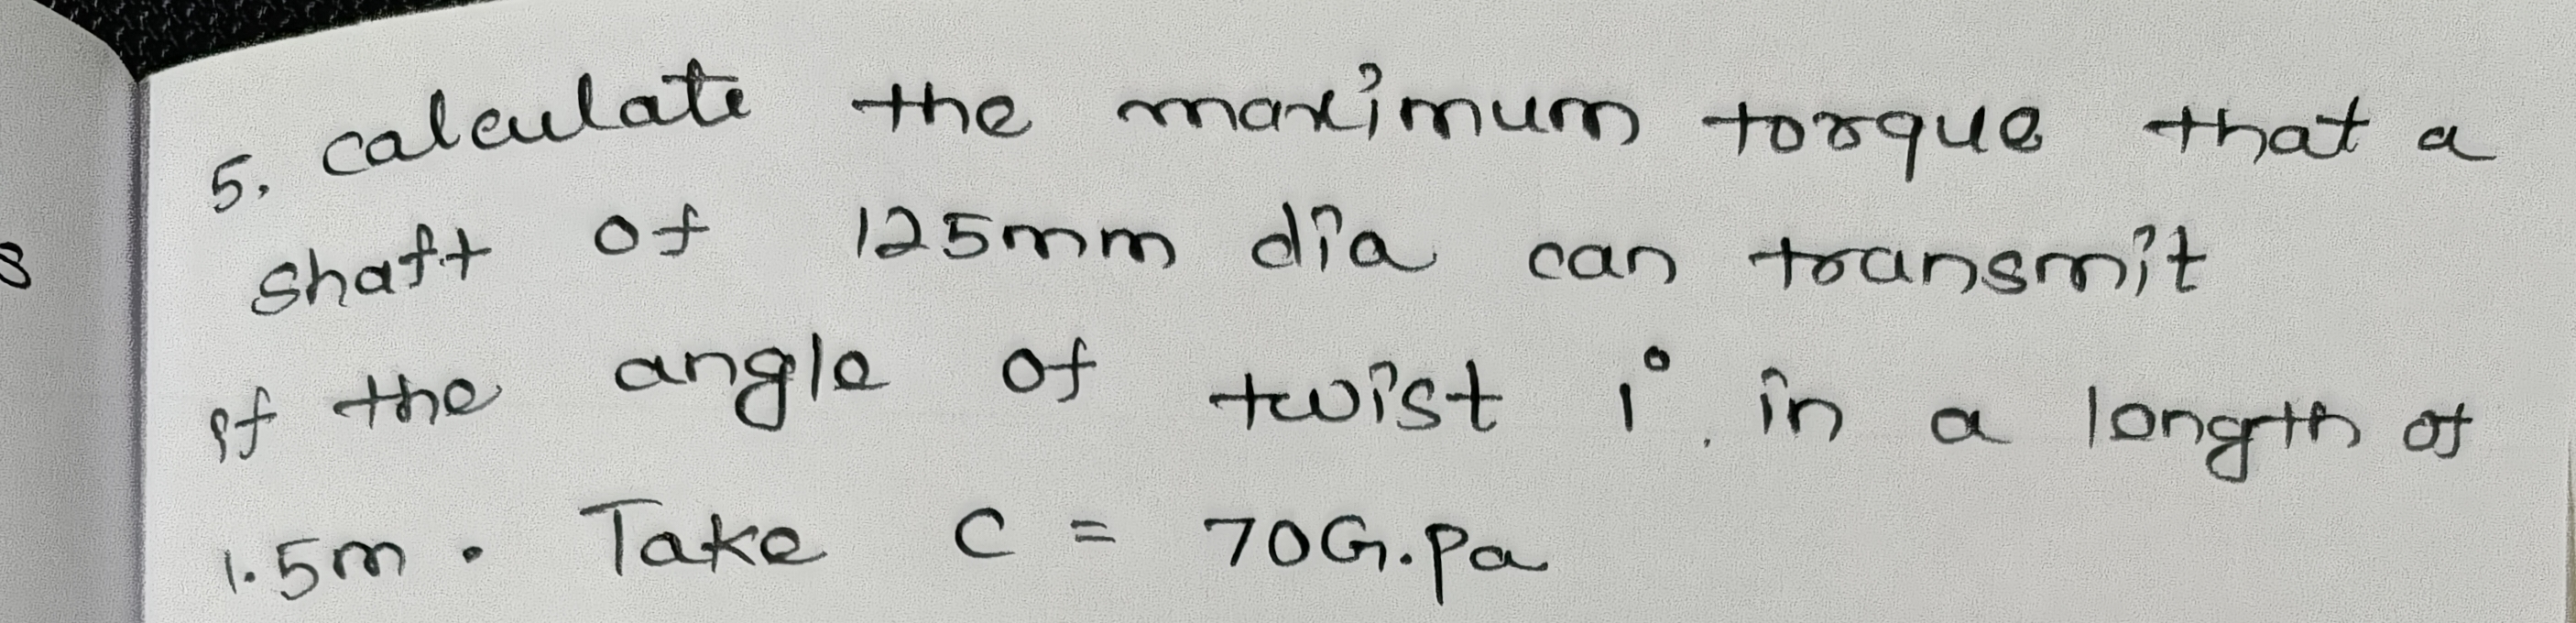 5. calculate the maximum torque that a
shaft of 125mm dia can transmit
if the angle of twist 1° in a length of
1.5m. Take C = 70G.pa